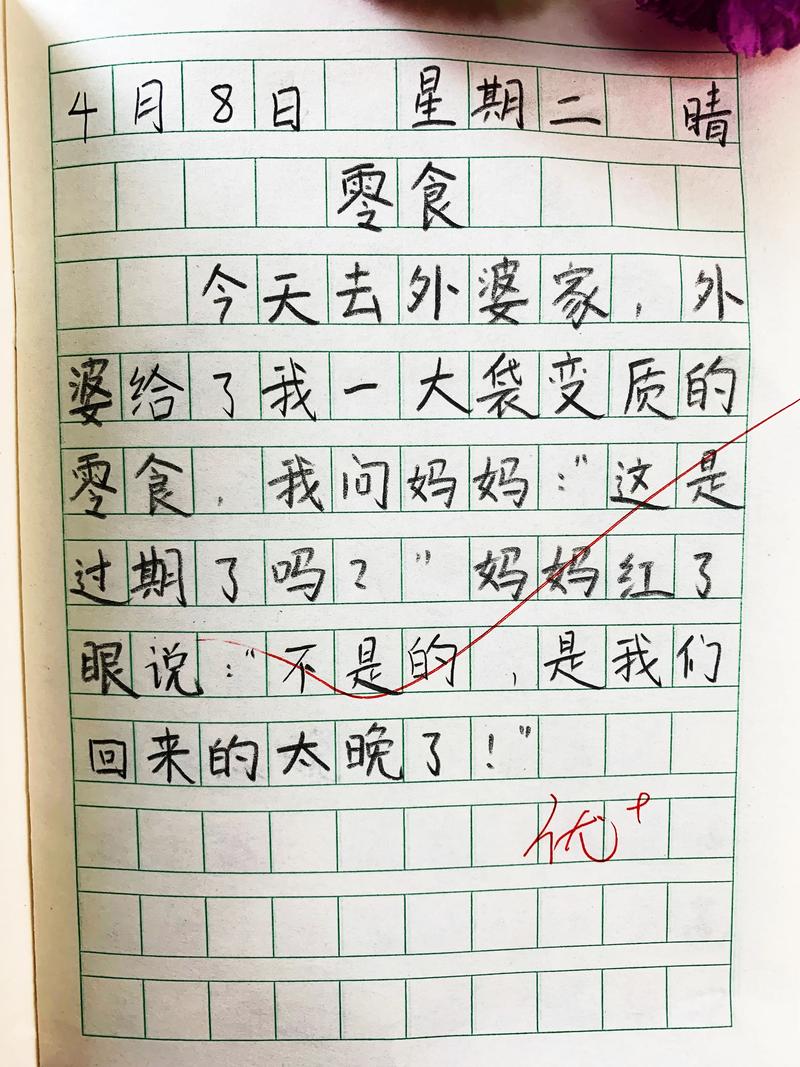 4月8日 星期二 晴
零食
今天去外婆家，外
婆给了我一大袋变质的
零食，我问妈妈："这是
过期了吗？"妈妈红了
眼说："不是的，是我们
回来的太晚了！"
优+